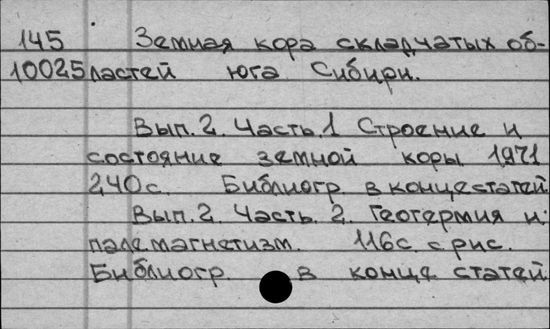 145 Земная кора складчатых об-
10025 ластей юга Сибири.
Вып. 2. Часть 1 Строение и
состояние земной коры 1971
240с. Библиогр. в конце статей
Вып. 2. Часть. 2. Геотермия и
палемагнетизм. 116с. с рис.
Библиогр. в конце статей